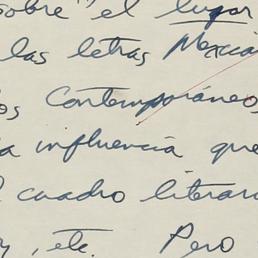 sobre el lugar
las letras Mexica
os Contemporáneos
a influencia que
cuadro literar
, etc. Pero